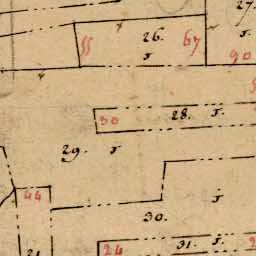 27.
26.
55
67
90
30
28.
29.
44
30.
24
31.